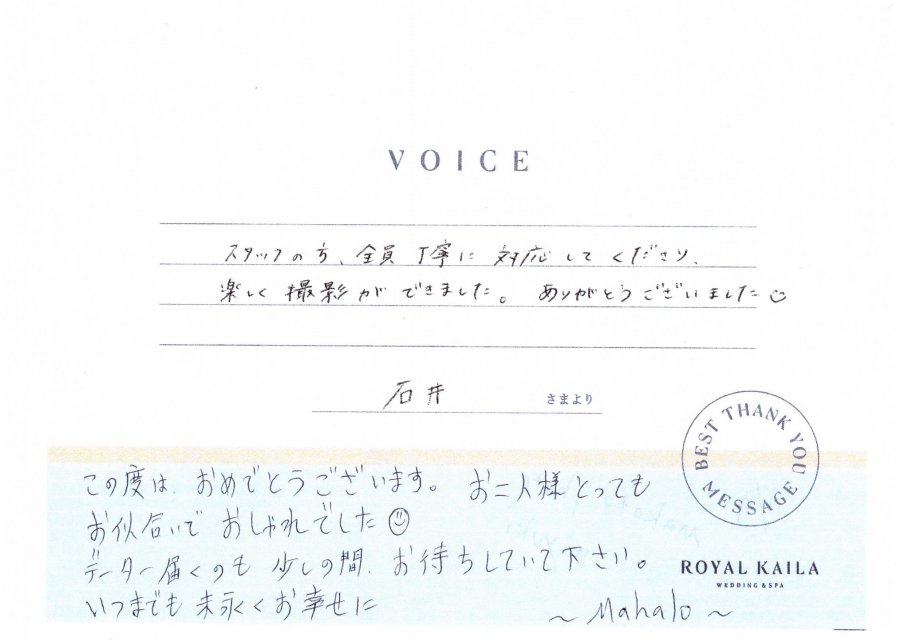 VOICE
スタッフの方、全員丁寧に対応してくださり、
楽しく撮影ができました。ありがとうございました☺
石井 さまより
BEST THANK YOU MESSAGE
この度は、おめでとうございます。お二人様とっても
お似合いでおしゃれでした☺
データー届くのも少しの間、お待ちしていて下さい。
いつまでも末永くお幸せに
～Mahalo～
ROYAL KAILA
WEDDING & SPA